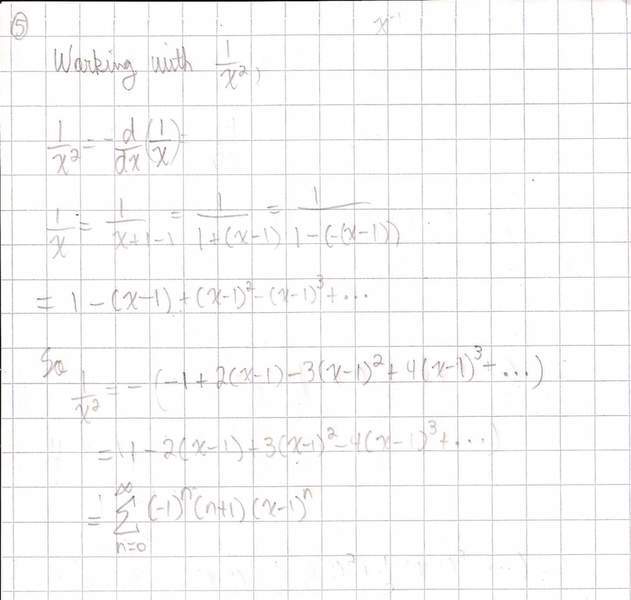 5
Working with 1/x²,
1/x² = -d/dx(1/x)
1/x = 1/(x+1-1) = 1/(1+(x-1)) = 1/(1-(-(x-1)))
= 1-(x-1)+(x-1)²-(x-1)³+...
So
1/x² = -(-1+2(x-1)-3(x-1)²+4(x-1)³+...)
= 1-2(x-1)+3(x-1)²-4(x-1)³+...
= ∑_{n=0}^{∞} (-1)ⁿ(n+1)(x-1)ⁿ